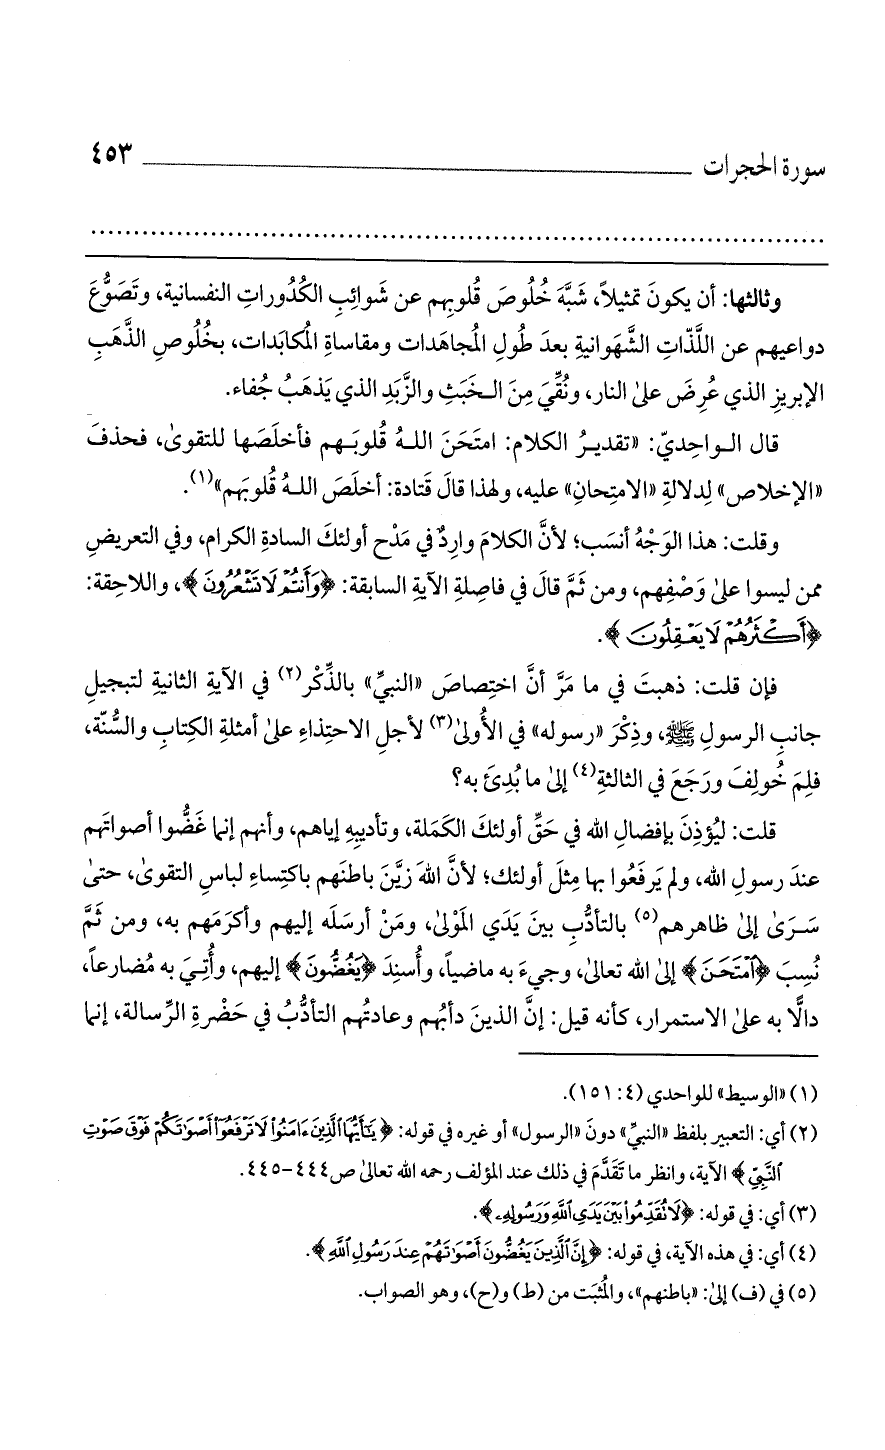 سورة الحجرات ٤٥٣
................................................................................
وثالثها: أن يكونَ تمثيلاً، شبَّهَ خُلُوصَ قُلوبِهم عن شَوائِبِ الكُدُوراتِ النفسانية، وتَصَوُّعَ
دواعيهم عن اللَّذّاتِ الشَّهَوانيةِ بعدَ طُولِ المُجاهَدات ومقاساةِ المُكابَدات، بخُلُوصِ الذَّهَبِ
الإبريزِ الذي عُرِضَ على النار، ونُقِّيَ مِنَ الـخَبَثِ والزَّبَدِ الذي يَذهَبُ جُفاء.
قال الـواحِديّ: «تقديرُ الكلام: امتَحَنَ اللـهُ قُلوبَـهم فأخلَصَها للتقوىٰ، فحذفَ
«الإخلاص» لِدلالةِ «الامتِحانِ» عليه، ولهذا قالَ قَتادة: أخلَصَ اللـهُ قُلوبَهم»(١).
وقلت: هذا الوَجْهُ أنسَب؛ لأنَّ الكلامَ وارِدٌ في مَدْح أولئكَ السادةِ الكرام، وفي التعريضِ
ممن ليسوا علىٰ وَصْفِهم، ومن ثَمَّ قالَ في فاصِلةِ الآيةِ السابقة: ﴿وَأَنتُمْ لَا تَشْعُرُونَ﴾، واللاحِقة:
﴿أَكْثَرُهُمْ لَا يَعْقِلُونَ﴾.
فإن قلت: ذهبتَ في ما مَرَّ أنَّ اختِصاصَ «النبيِّ» بالذِّكْر(٢) في الآيةِ الثانيةِ لتبجيلِ
جانبِ الرسولِ ﷺ، وذِكْرَ «رسوله» في الأُولىٰ(٣) لأجلِ الاحتِذاءِ علىٰ أمثلةِ الكِتابِ والسُّنّة،
فلِمَ خُولِفَ ورَجَعَ في الثالثةِ(٤) إلىٰ ما بُدِئَ به؟
قلت: ليُؤذِنَ بإفضالِ الله في حَقِّ أولئكَ الكَمَلة، وتأديبِهِ إياهم، وأنهم إنما غَضُّوا أصواتَهم
عندَ رسولِ الله، ولم يَرفَعُوا بها مِثلَ أولئك؛ لأنَّ اللهَ زيَّنَ باطنَهم باكتِساءِ لباسِ التقوىٰ، حتىٰ
سَـرَىٰ إلىٰ ظاهرهم(٥) بالتأدُّبِ بينَ يَدَيِ المَوْلىٰ، ومَنْ أرسَلَه إليهم وأكرَمَهم به، ومن ثَمَّ
نُسِبَ ﴿ٱمْتَحَنَ﴾ إلىٰ الله تعالىٰ، وجيءَ به ماضياً، وأُسنِدَ ﴿يَغُضُّونَ﴾ إليهم، وأُتِيَ به مُضارعاً،
دالًّا به علىٰ الاستمرار، كأنه قيل: إنَّ الذينَ دأبُهم وعادتُهم التأدُّبُ في حَضْرةِ الرِّسالة، إنما
(١) «الوسيط» للواحدي (٤: ١٥١).
(٢) أي: التعبير بلفظ «النبيِّ» دونَ «الرسول» أو غيره في قوله: ﴿يَٰٓأَيُّهَا ٱلَّذِينَ ءَامَنُوا۟ لَا تَرْفَعُوٓا۟ أَصْوَٰتَكُمْ فَوْقَ صَوْتِ
ٱلنَّبِىِّ﴾ الآية، وانظر ما تَقَدَّمَ في ذلك عند المؤلف رحمه الله تعالىٰ ص٤٤٤-٤٤٥.
(٣) أي: في قوله: ﴿لَا تُقَدِّمُوا۟ بَيْنَ يَدَىِ ٱللَّهِ وَرَسُولِهِۦ﴾.
(٤) أي: في هذه الآية، في قوله: ﴿إِنَّ ٱلَّذِينَ يَغُضُّونَ أَصْوَٰتَهُمْ عِندَ رَسُولِ ٱللَّهِ﴾.
(٥) في (ف) إلىٰ: «باطنهم»، والمُثبَت من (ط) و(ح)، وهو الصواب.